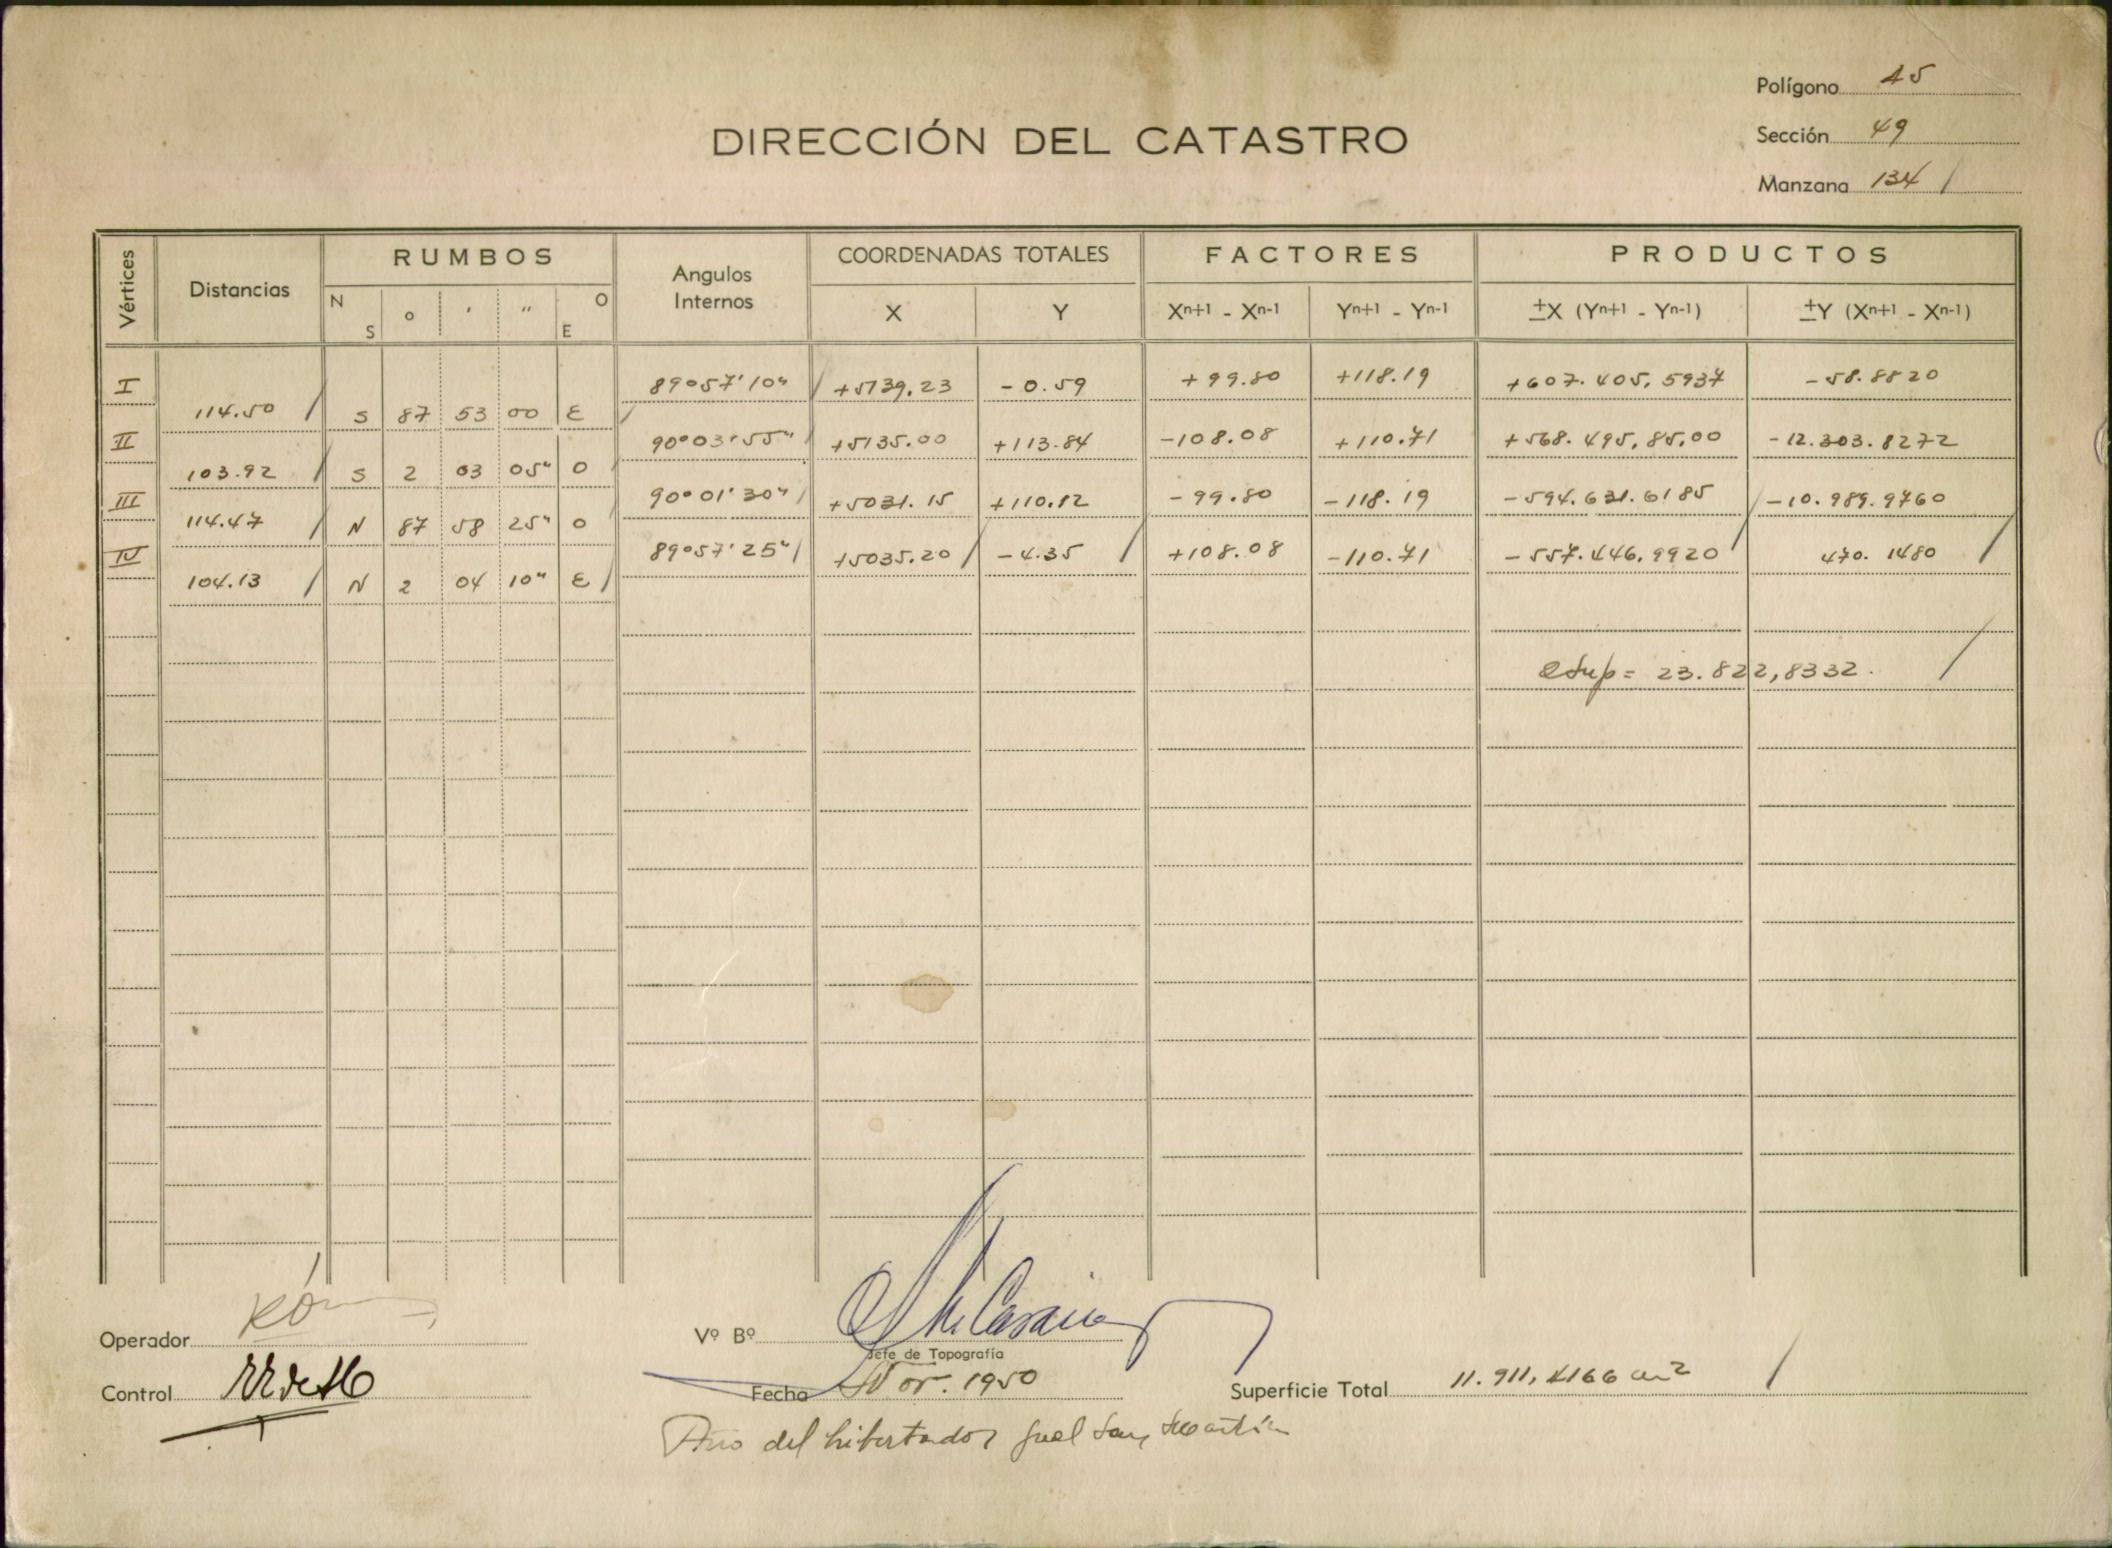 Polígono 45
DIRECCIÓN DEL CATASTRO
Sección 49
Manzana 134 /
Vértices Distancias RUMBOS Angulos Internos COORDENADAS TOTALES FACTORES PRODUCTOS
N S o ' " O E X Y Xn+1 - Xn-1 Yn+1 - Yn-1 ±X (Yn+1 - Yn-1) ±Y (Xn+1 - Xn-1)
I 89°57'10" / +5139.23 - 0.59 +99.80 +118.19 +607.405,5937 -58.8820
114.50 / S 87 53 00 E
II 90°03'55" / +5135.00 +113.84 -108.08 +110.71 +568.495,85,00 -12.303.8272
103.92 / S 2 03 05" O
III 90°01'30" / +5031.15 +110.12 -99.80 -118.19 -594.631.6185 -10.989.9760
114.47 / N 87 58 25" O
IV 89°57'25" / +5035.20 / -4.35 / +108.08 -110.71 -557.446,9920 / 470.1480 /
104.13 / N 2 04 10" E /
2Sup = 23.822,8332. /
Operador
Vº Bº
Jefe de Topografía
Control
Fecha Nov. 1950
Superficie Total 11.911,4166 m2 /
Año del Libertador Gral San Martín